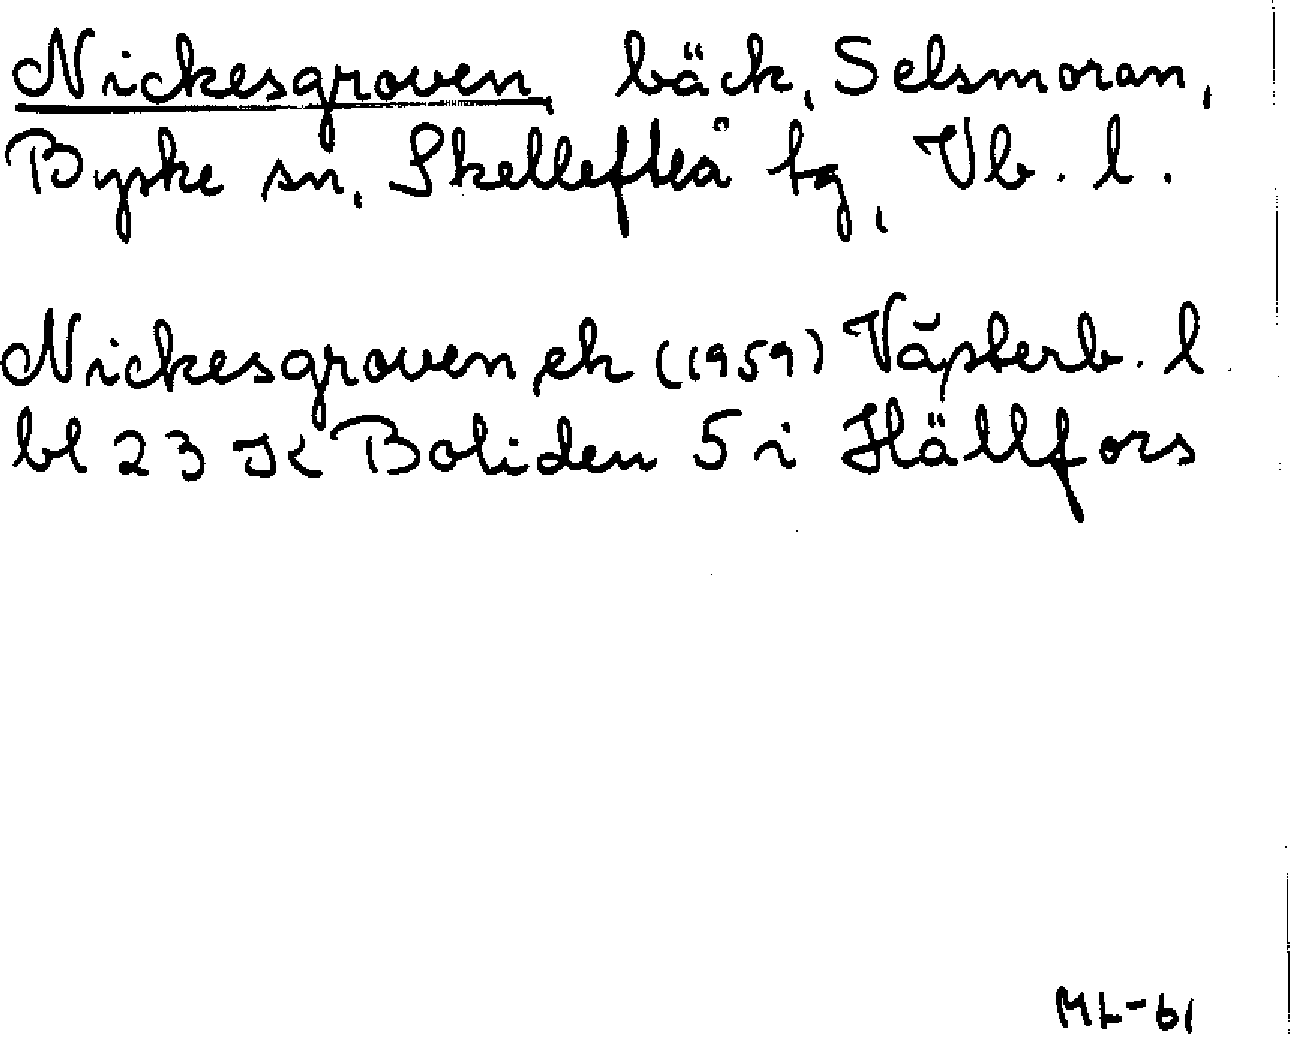 Nickesgroven, bäck, Selsmoran,
Byske sn, Skellefteå tg, Vb. l.
Nickesgroven, ek (1959) Västerb. l
bl 23 K Boliden 5 i Hällfors
ML-61